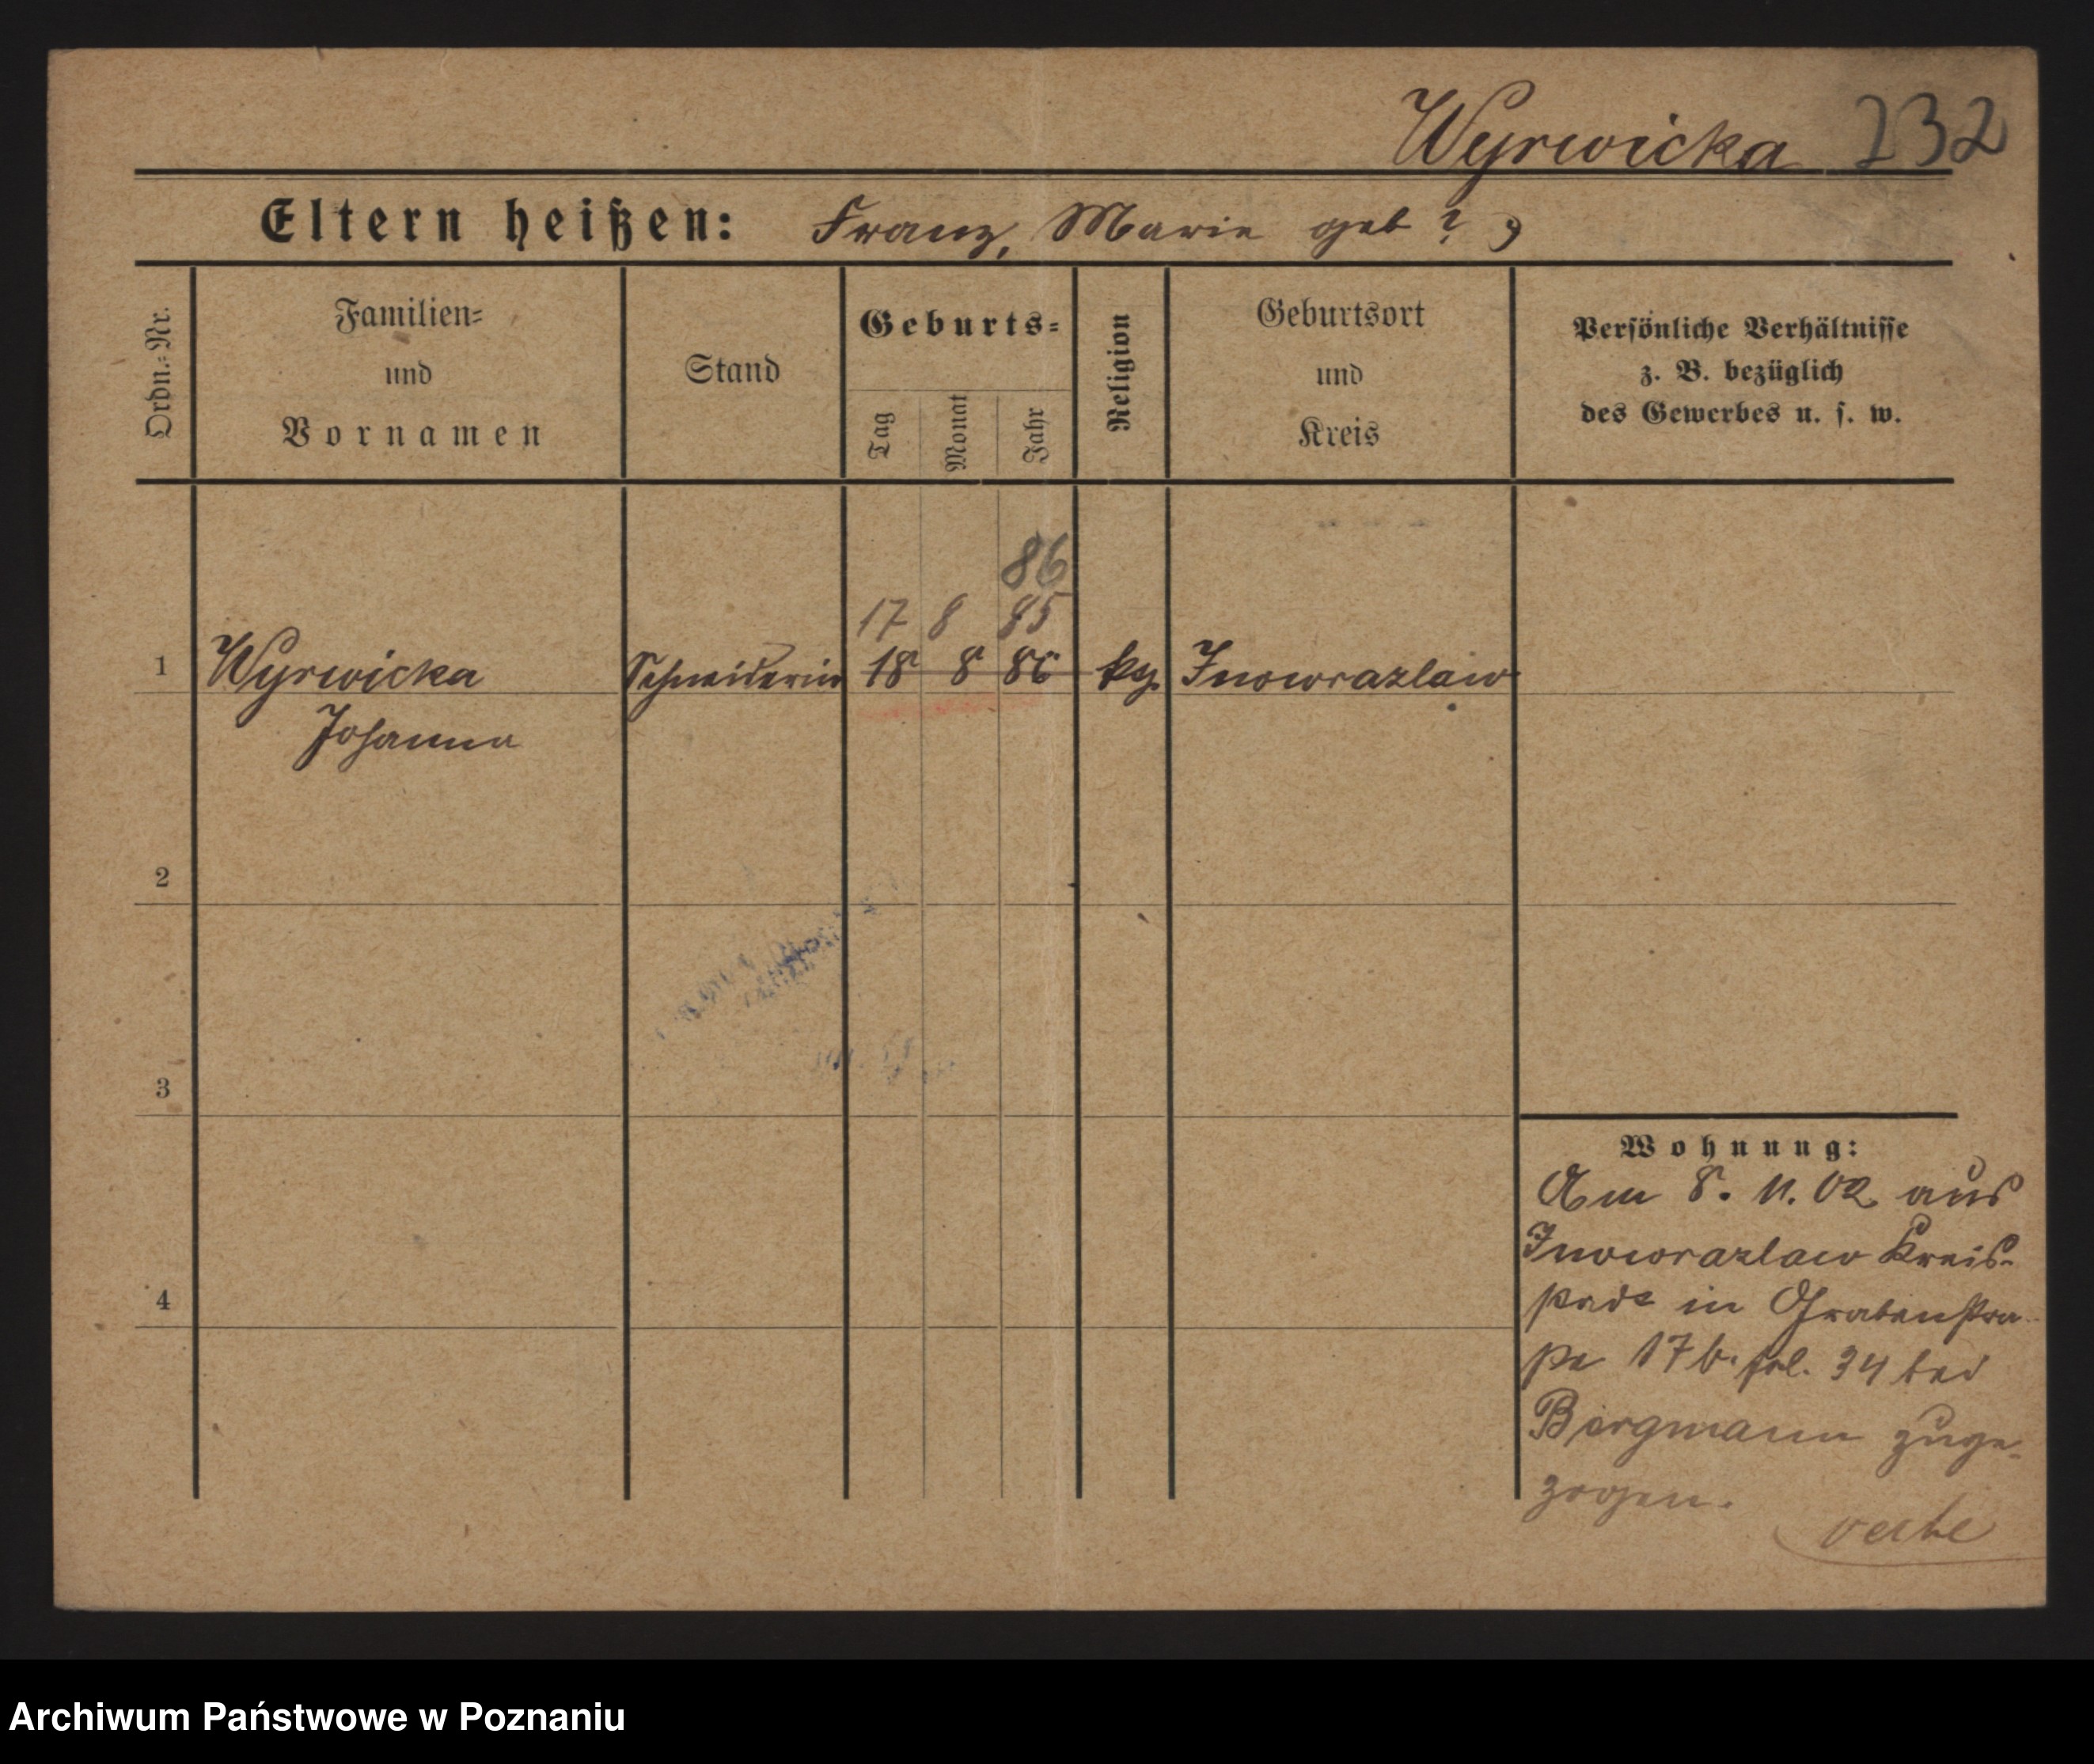 Wyrwicka 232
Eltern heißen: Franz, Marie geb ? ,
Ordn.-Nr.
Familien-
und
Vornamen
Stand
Geburts-
Tag
Monat
Jahr
Religion
Geburtsort
und
Kreis
Persönliche Verhältnisse
z. B. bezüglich
des Gewerbes u. s. w.
86
17 8 85
1 Wyrwicka Schneiderin 18 8 86 Inowrazlaw
Johanna
2
3
4
Wohnung:
Am 8. 11. 02 aus
Inowrazlaw Kreis-
stadt in Grabenstra-
ße 17 b. fol. 34 bei
Bergmann zuge-
zogen.
verte
Archiwum Państwowe w Poznaniu